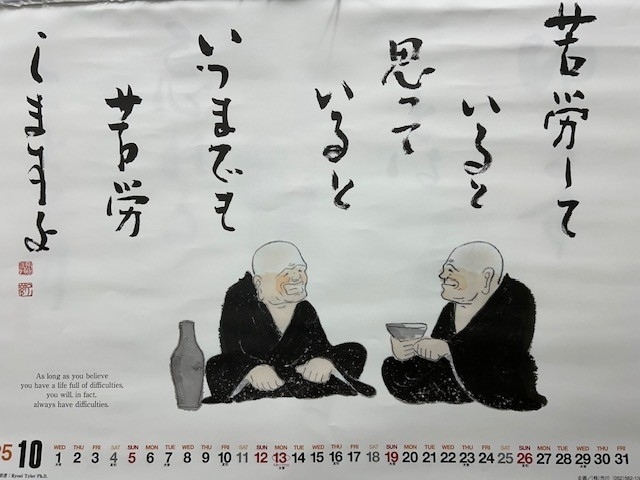 苦労して
いると
思って
いると
いつまでも
苦労
しますよ
As long as you believe
you have a life full of difficulties,
you will, in fact,
always have difficulties.
25 10
WED THU FRI SAT SUN MON TUE WED THU FRI SAT SUN MON TUE WED THU FRI SAT SUN MON TUE WED THU FRI SAT SUN MON TUE WED THU FRI
1 2 3 4 5 6 7 8 9 10 11 12 13 14 15 16 17 18 19 20 21 22 23 24 25 26 27 28 29 30 31
Ryusei Tyler Ph.D.